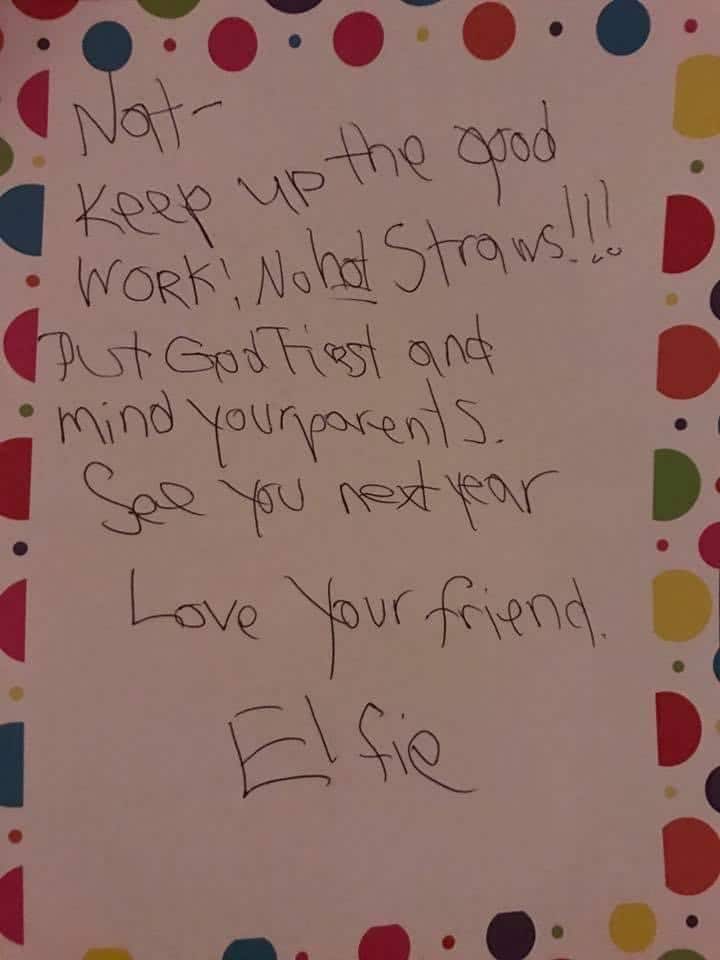 Nat-
Keep up the good
WORK! No hot Straws!!!
Put God First and
mind your parents.
See you next year
Love Your friend.
Elfie